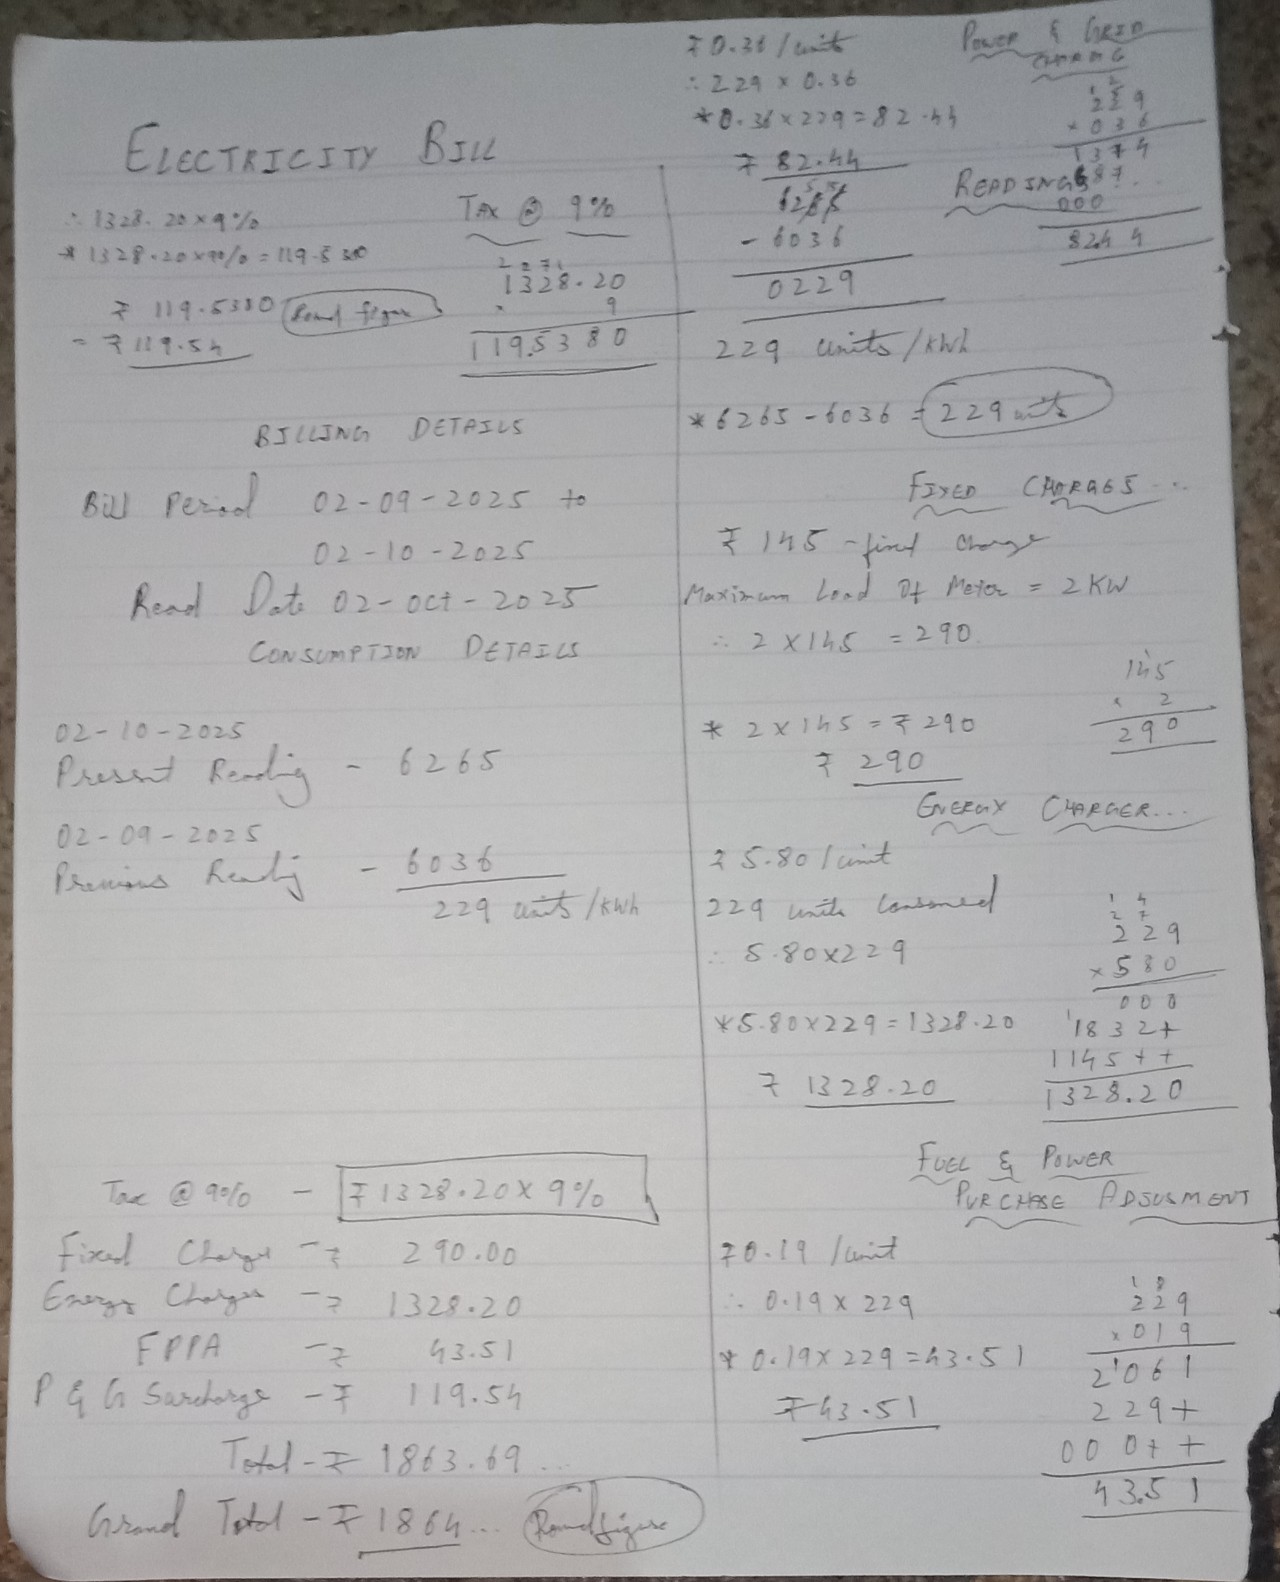 ELECTRICITY BILL
∴ 1328.20 x 9%
* 1328.20 x 9% = 119.5380
₹ 119.5380 Round figure
= ₹ 119.54
TAX @ 9%
1328.20
x 9
119.5380
BILLING DETAILS
Bill Period 02-09-2025 to
02-10-2025
Read Date 02-Oct-2025
CONSUMPTION DETAILS
02-10-2025
Present Reading - 6265
02-09-2025
Previous Reading - 6036
229 units/kWh
Tax @ 9% - ₹ 1328.20 x 9%
Fixed Charge - ₹ 290.00
Energy Charges - ₹ 1328.20
FPPA - ₹ 43.51
P & G Surcharge - ₹ 119.54
Total - ₹ 1863.69 ...
Grand Total - ₹ 1864 ... Round figure
₹ 0.36 / units
∴ 229 x 0.36
* 0.36 x 229 = 82.44
₹ 82.44
POWER & GRID
CHARG
1 2
229
x 036
1374
687
000
8244
READINGS ...
6265
- 6036
0229
229 units/kWh
* 6265 - 6036 = 229 units
FIXED CHARAGES ...
₹ 145 - fixed charge
Maximum Load Of Meter = 2 KW
∴ 2 x 145 = 290
* 2 x 145 = ₹ 290
₹ 290
145
x 2
290
ENERGY CHARGER...
₹ 5.80 / unit
229 units consumed
∴ 5.80 x 229
* 5.80 x 229 = 1328.20
₹ 1328.20
1 4
2 7
229
x 580
000
1832+
1145++
1328.20
FUEL & POWER
PURCHASE ADJUSMENT
₹ 0.19 / unit
∴ 0.19 x 229
* 0.19 x 229 = 43.51
₹ 43.51
1 8
229
x 019
2061
229+
000++
43.51